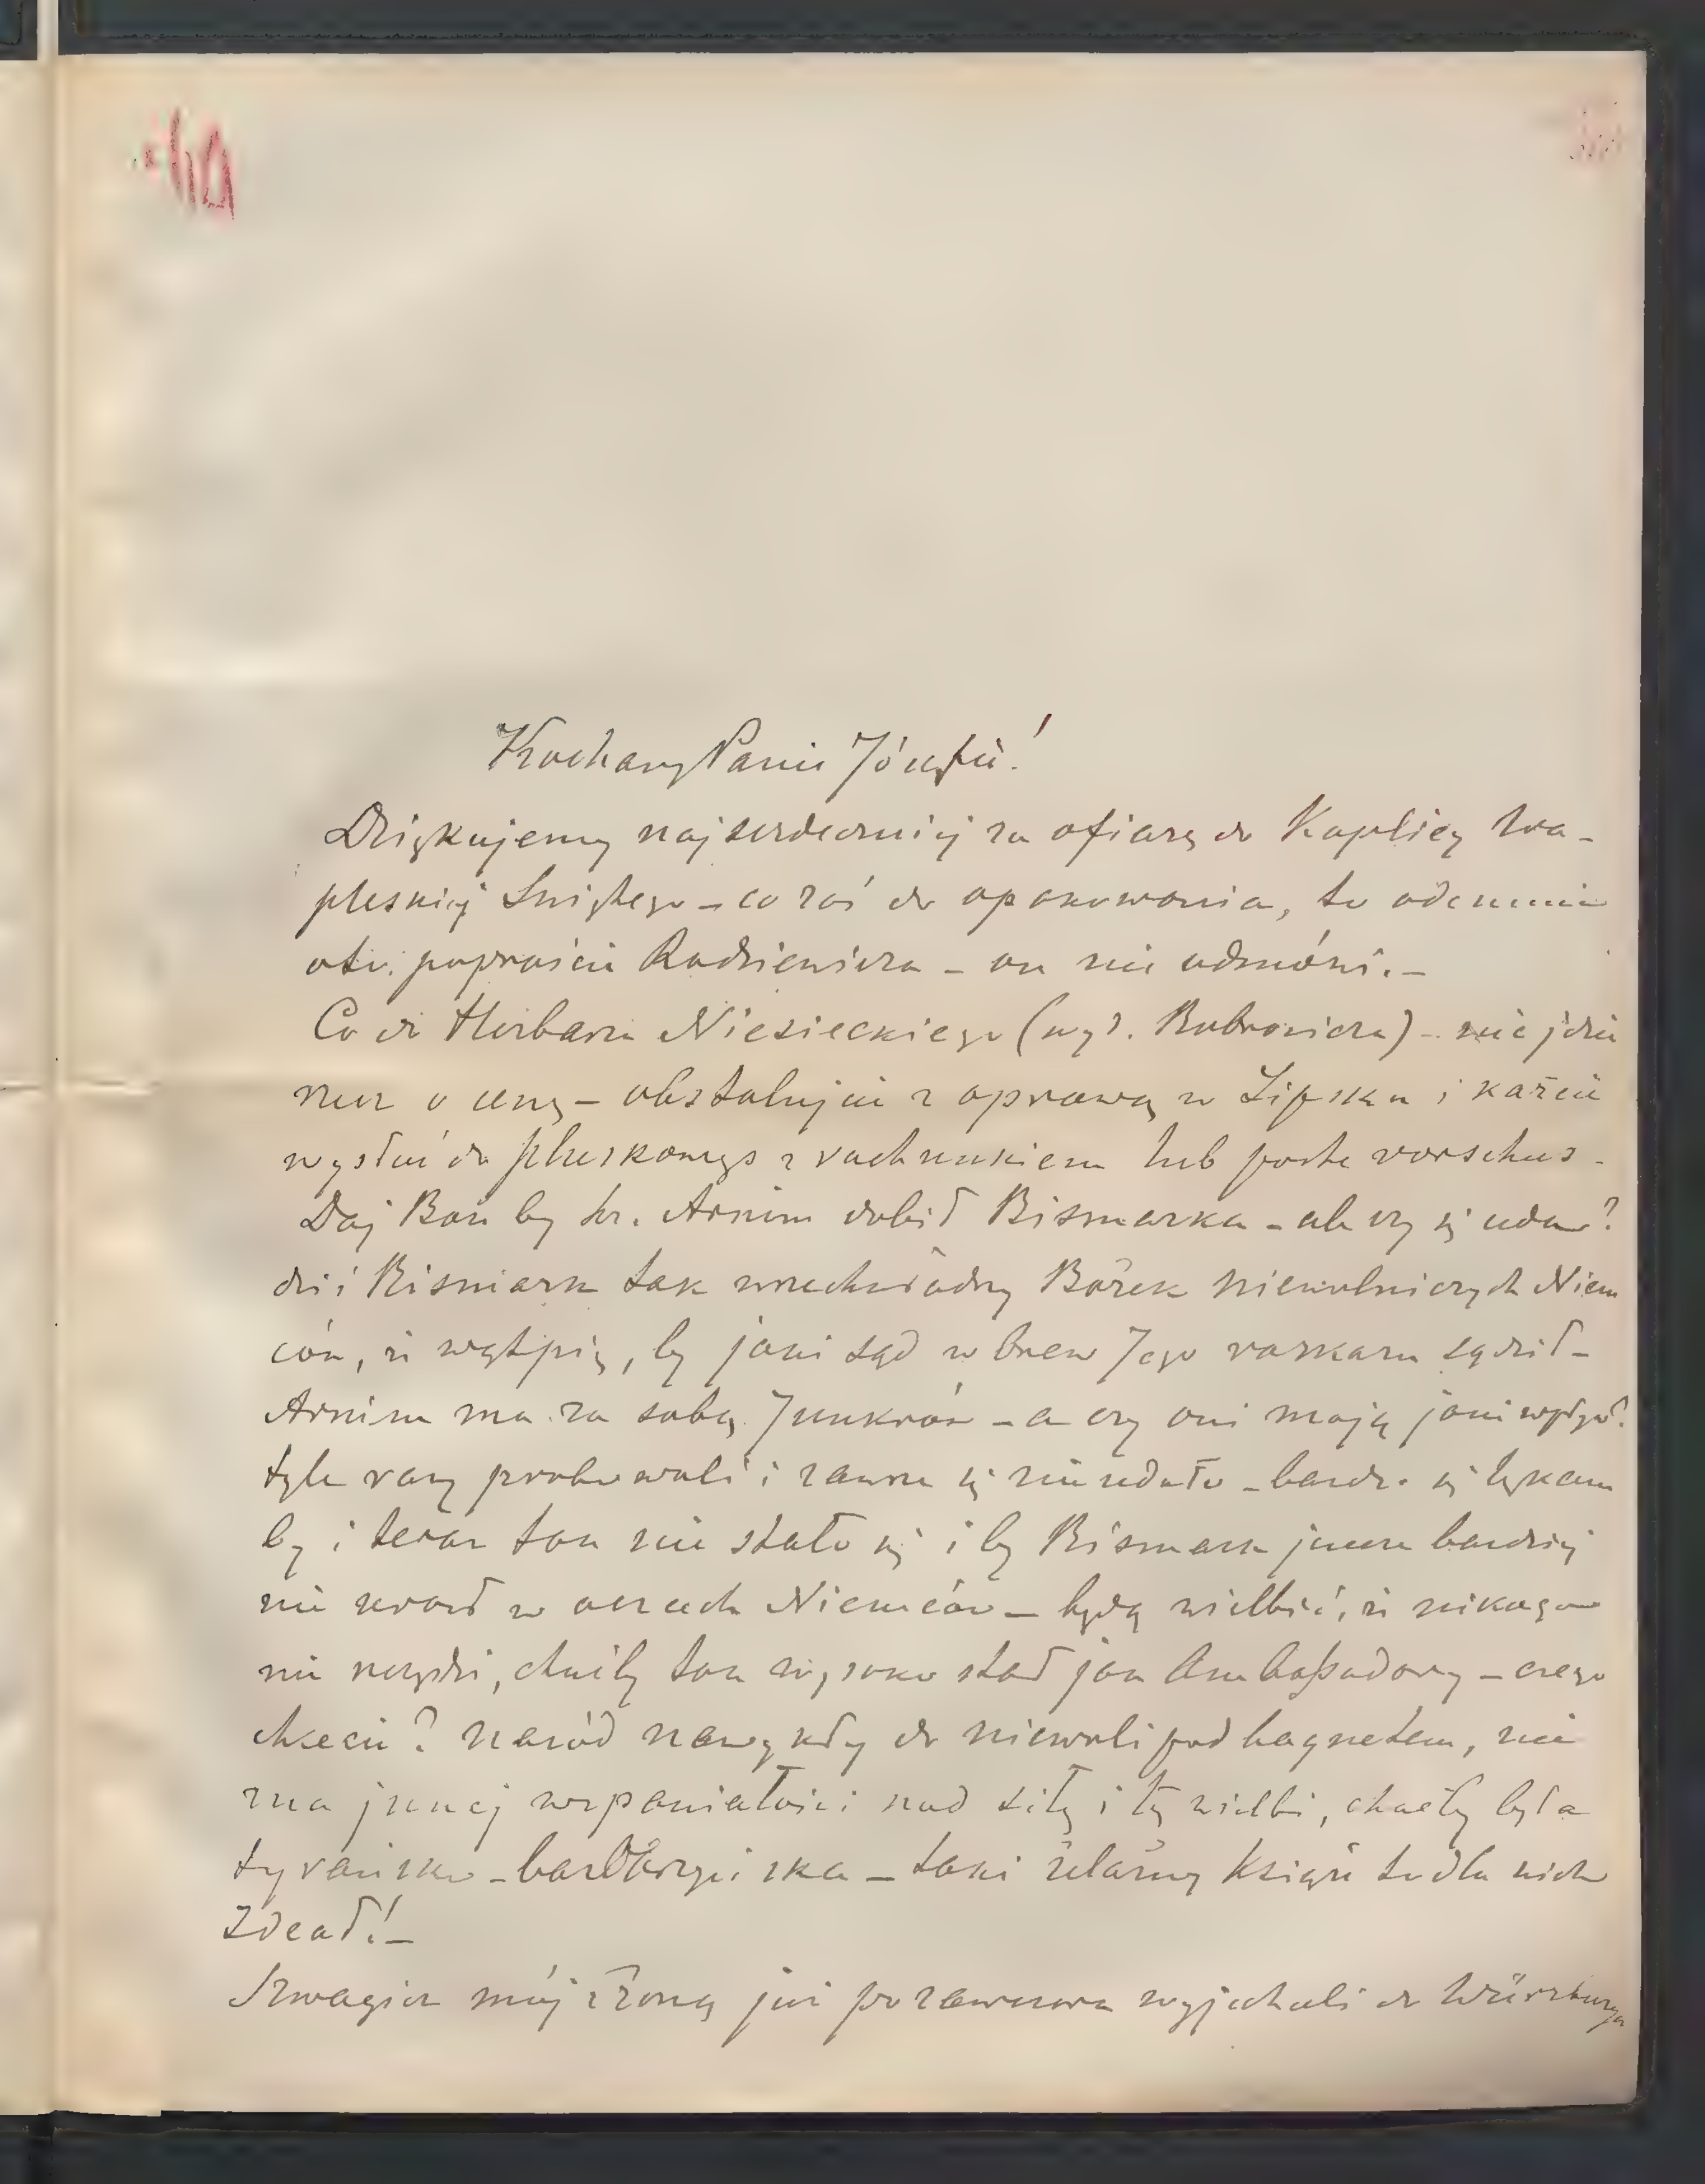 Kochany Panie Józefie!
Dziękujemy najserdeczniej za ofiarę do Kaplicy Wa-
pleskiej Świętego – co zaś do opakowania, to odemnie
poproście Radziewicza – on nie odmówi. –
Co do Herbarza Niesieckiego (wyd. Bobrowicza) – nie idzie
nam o cenę – obstalujcie z oprawą w Lipsku i każcie
wysłać do Pluskowęs z rachunkiem lub poste vorschus –
Daj Boże by hr. Arnim dobił Bismarka – ale czy się uda?
dziś Bismark tak wszechwładny Bożek niewolniczych Niem
ców, iż wątpię, by jaki sąd w brew Jego rozkazu sądził –
Arnim ma za sobą Junkrów – a czy oni mają jaki wpływ?
tyle razy probowali i zawsze się nie udało – bardzo się lękam
by i teraz tak nie stało się i by Bismark jeszcze bardziej
nie urósł w oczach Niemców – będą wielbić, iż nikogo
nie oszczędzi, choćby tak wysoko stał jak Ambassadorzy – czego
chcecie? naród nawykły do niewoli pod bagnetem, nie
zna innej wspaniałości nad siłę i tę wielbi, choćby była
tyrańska – barbarzyńska – taki żelazny Książe to dla nich
Ideał! –
Szwagier mój z żoną już po zawczora wyjechali do Würzburga